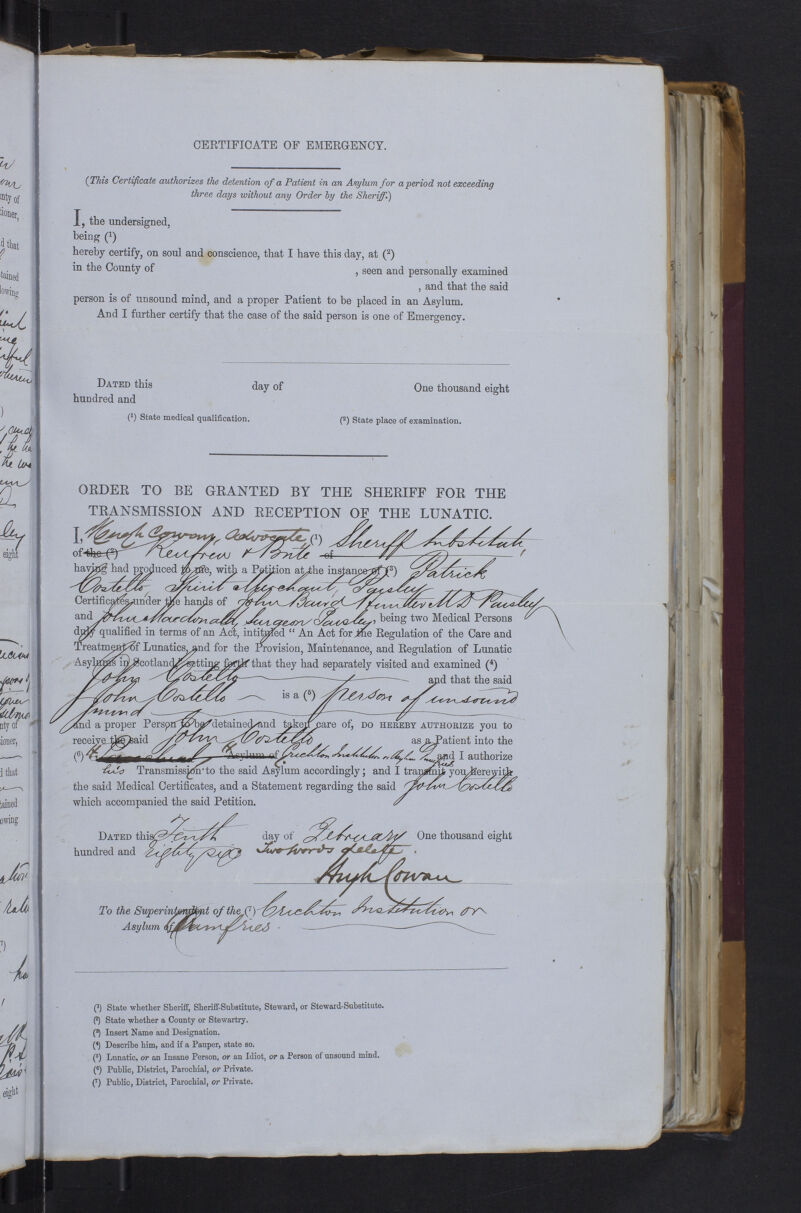 CERTIFICATE OF EMERGENCY.
(This Certificate authorizes the detention of a Patient in an Asylum for a period not exceeding
three days without any Order by the Sheriff.)
I, the undersigned,
being (1)
hereby certify, on soul and conscience, that I have this day, at (2)
in the County of , seen and personally examined
, and that the said
person is of unsound mind, and a proper Patient to be placed in an Asylum.
And I further certify that the case of the said person is one of Emergency.
DATED this day of One thousand eight
hundred and
(1) State medical qualification. (2) State place of examination.
ORDER TO BE GRANTED BY THE SHERIFF FOR THE
TRANSMISSION AND RECEPTION OF THE LUNATIC.
I, Hugh Cowan, Advocate, (1) Sheriff Substitute,
of the (2) Renfrew & Bute of
having had produced to me, with a Petition at the instance of (3) Patrick
Costello, Spirit Merchant, Paisley
Certificates under the hands of John Baird Hunter M D Paisley
and John Macdonald, Surgeon Paisley, being two Medical Persons
duly qualified in terms of an Act, intituled "An Act for the Regulation of the Care and
Treatment of Lunatics, and for the Provision, Maintenance, and Regulation of Lunatic
Asylums in Scotland," setting forth that they had separately visited and examined (4)
John Costello and that the said
John Costello is a (5) person of unsound
mind
and a proper Person to be detained and taken care of, DO HEREBY AUTHORIZE you to
receive the said John Costello as a Patient into the
(6) Asylum of Crichton Institution or Asylum Dumfries and I authorize
his Transmission to the said Asylum accordingly; and I transmit you herewith
the said Medical Certificates, and a Statement regarding the said John Costello
which accompanied the said Petition.
DATED this Tenth day of February One thousand eight
hundred and Eighty six Two words delete.
Hugh Cowan
To the Superintendent of the (7) Crichton Institution or
Asylum of Dumfries.
(1) State whether Sheriff, Sheriff-Substitute, Steward, or Steward-Substitute.
(2) State whether a County or Stewartry.
(3) Insert Name and Designation.
(4) Describe him, and if a Pauper, state so.
(5) Lunatic, or an Insane Person, or an Idiot, or a Person of unsound mind.
(6) Public, District, Parochial, or Private.
(7) Public, District, Parochial, or Private.